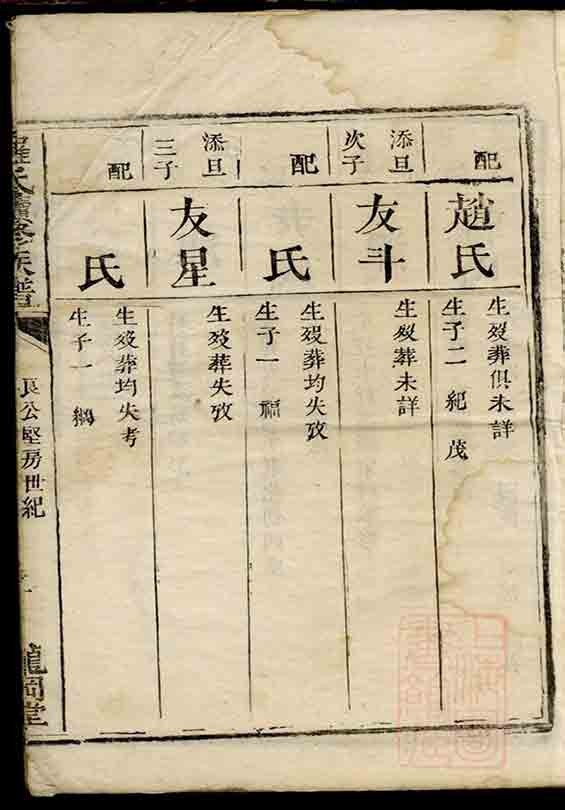 配
趙氏
生歿葬俱未詳
生子二 紀 茂
添旦
次子
友斗
生歿葬未詳
配
氏
生歿葬均失攷
生子一 福
添旦
三子
友星
生歿葬失攷
配
氏
生歿葬均失考
生子一 綱
羅氏續修族譜
良公堅房世紀
龍岡堂